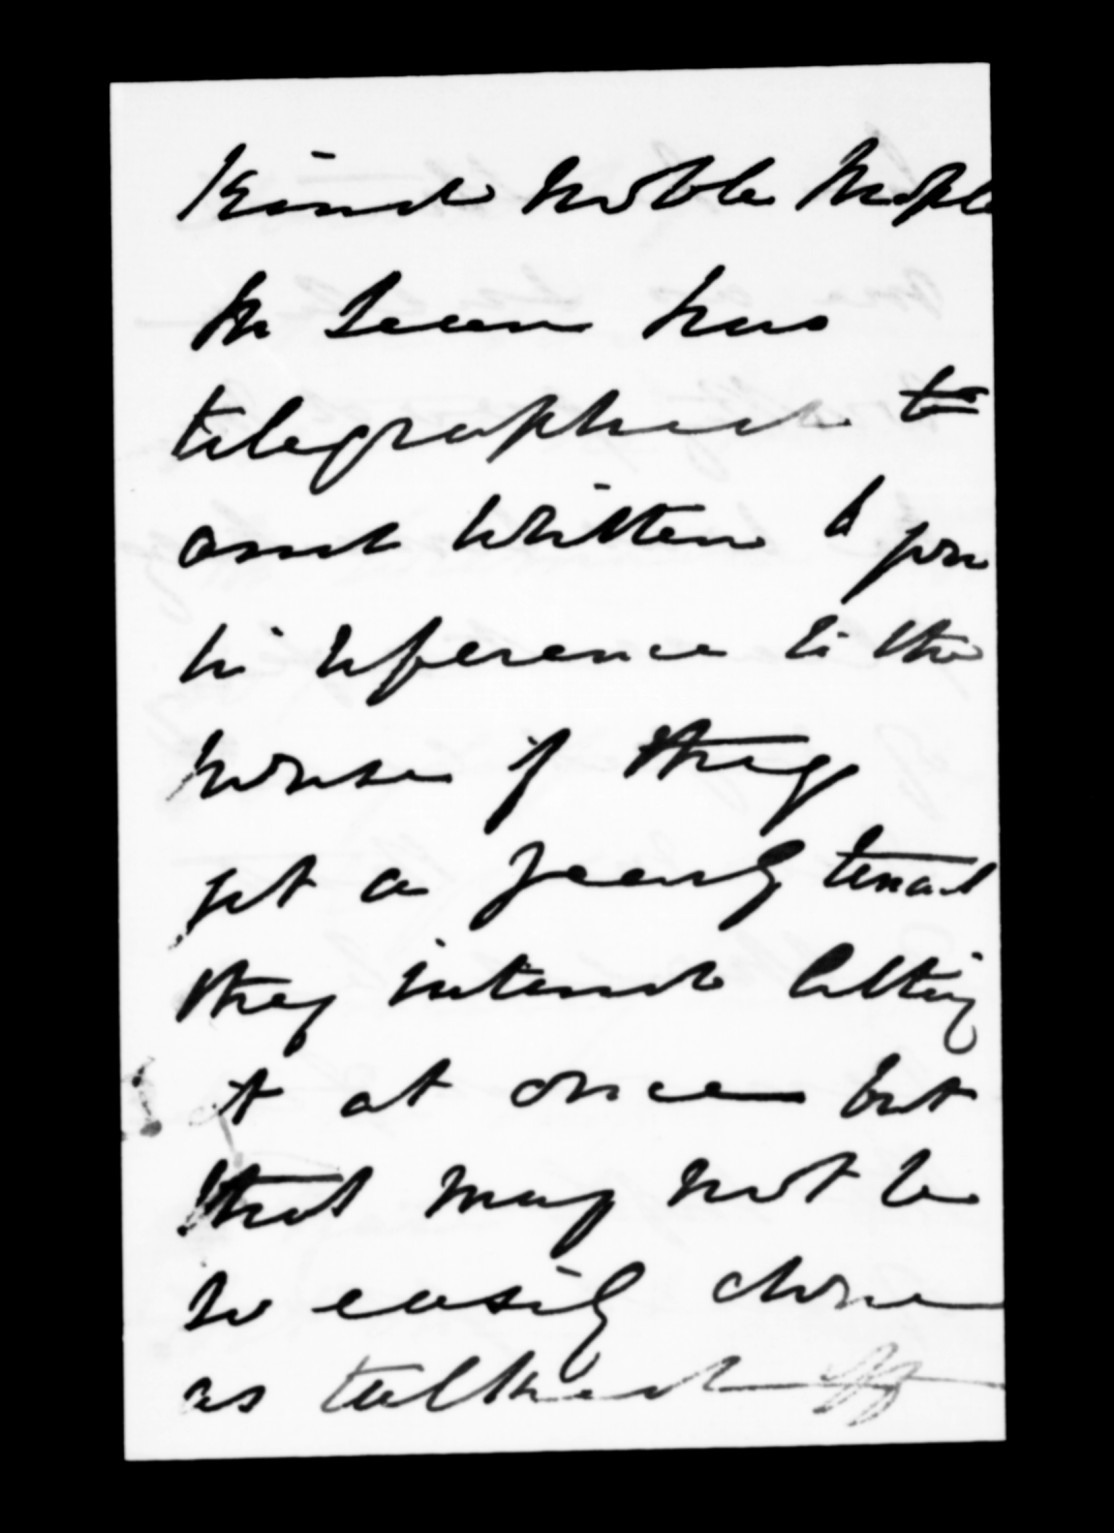 Kind noble people
Mr Lean has
telegraphed to
and written to you
in reference to the
house if they
get a yearly tenant
they intend letting
it at once but
that may not be
so easily done
as talked of